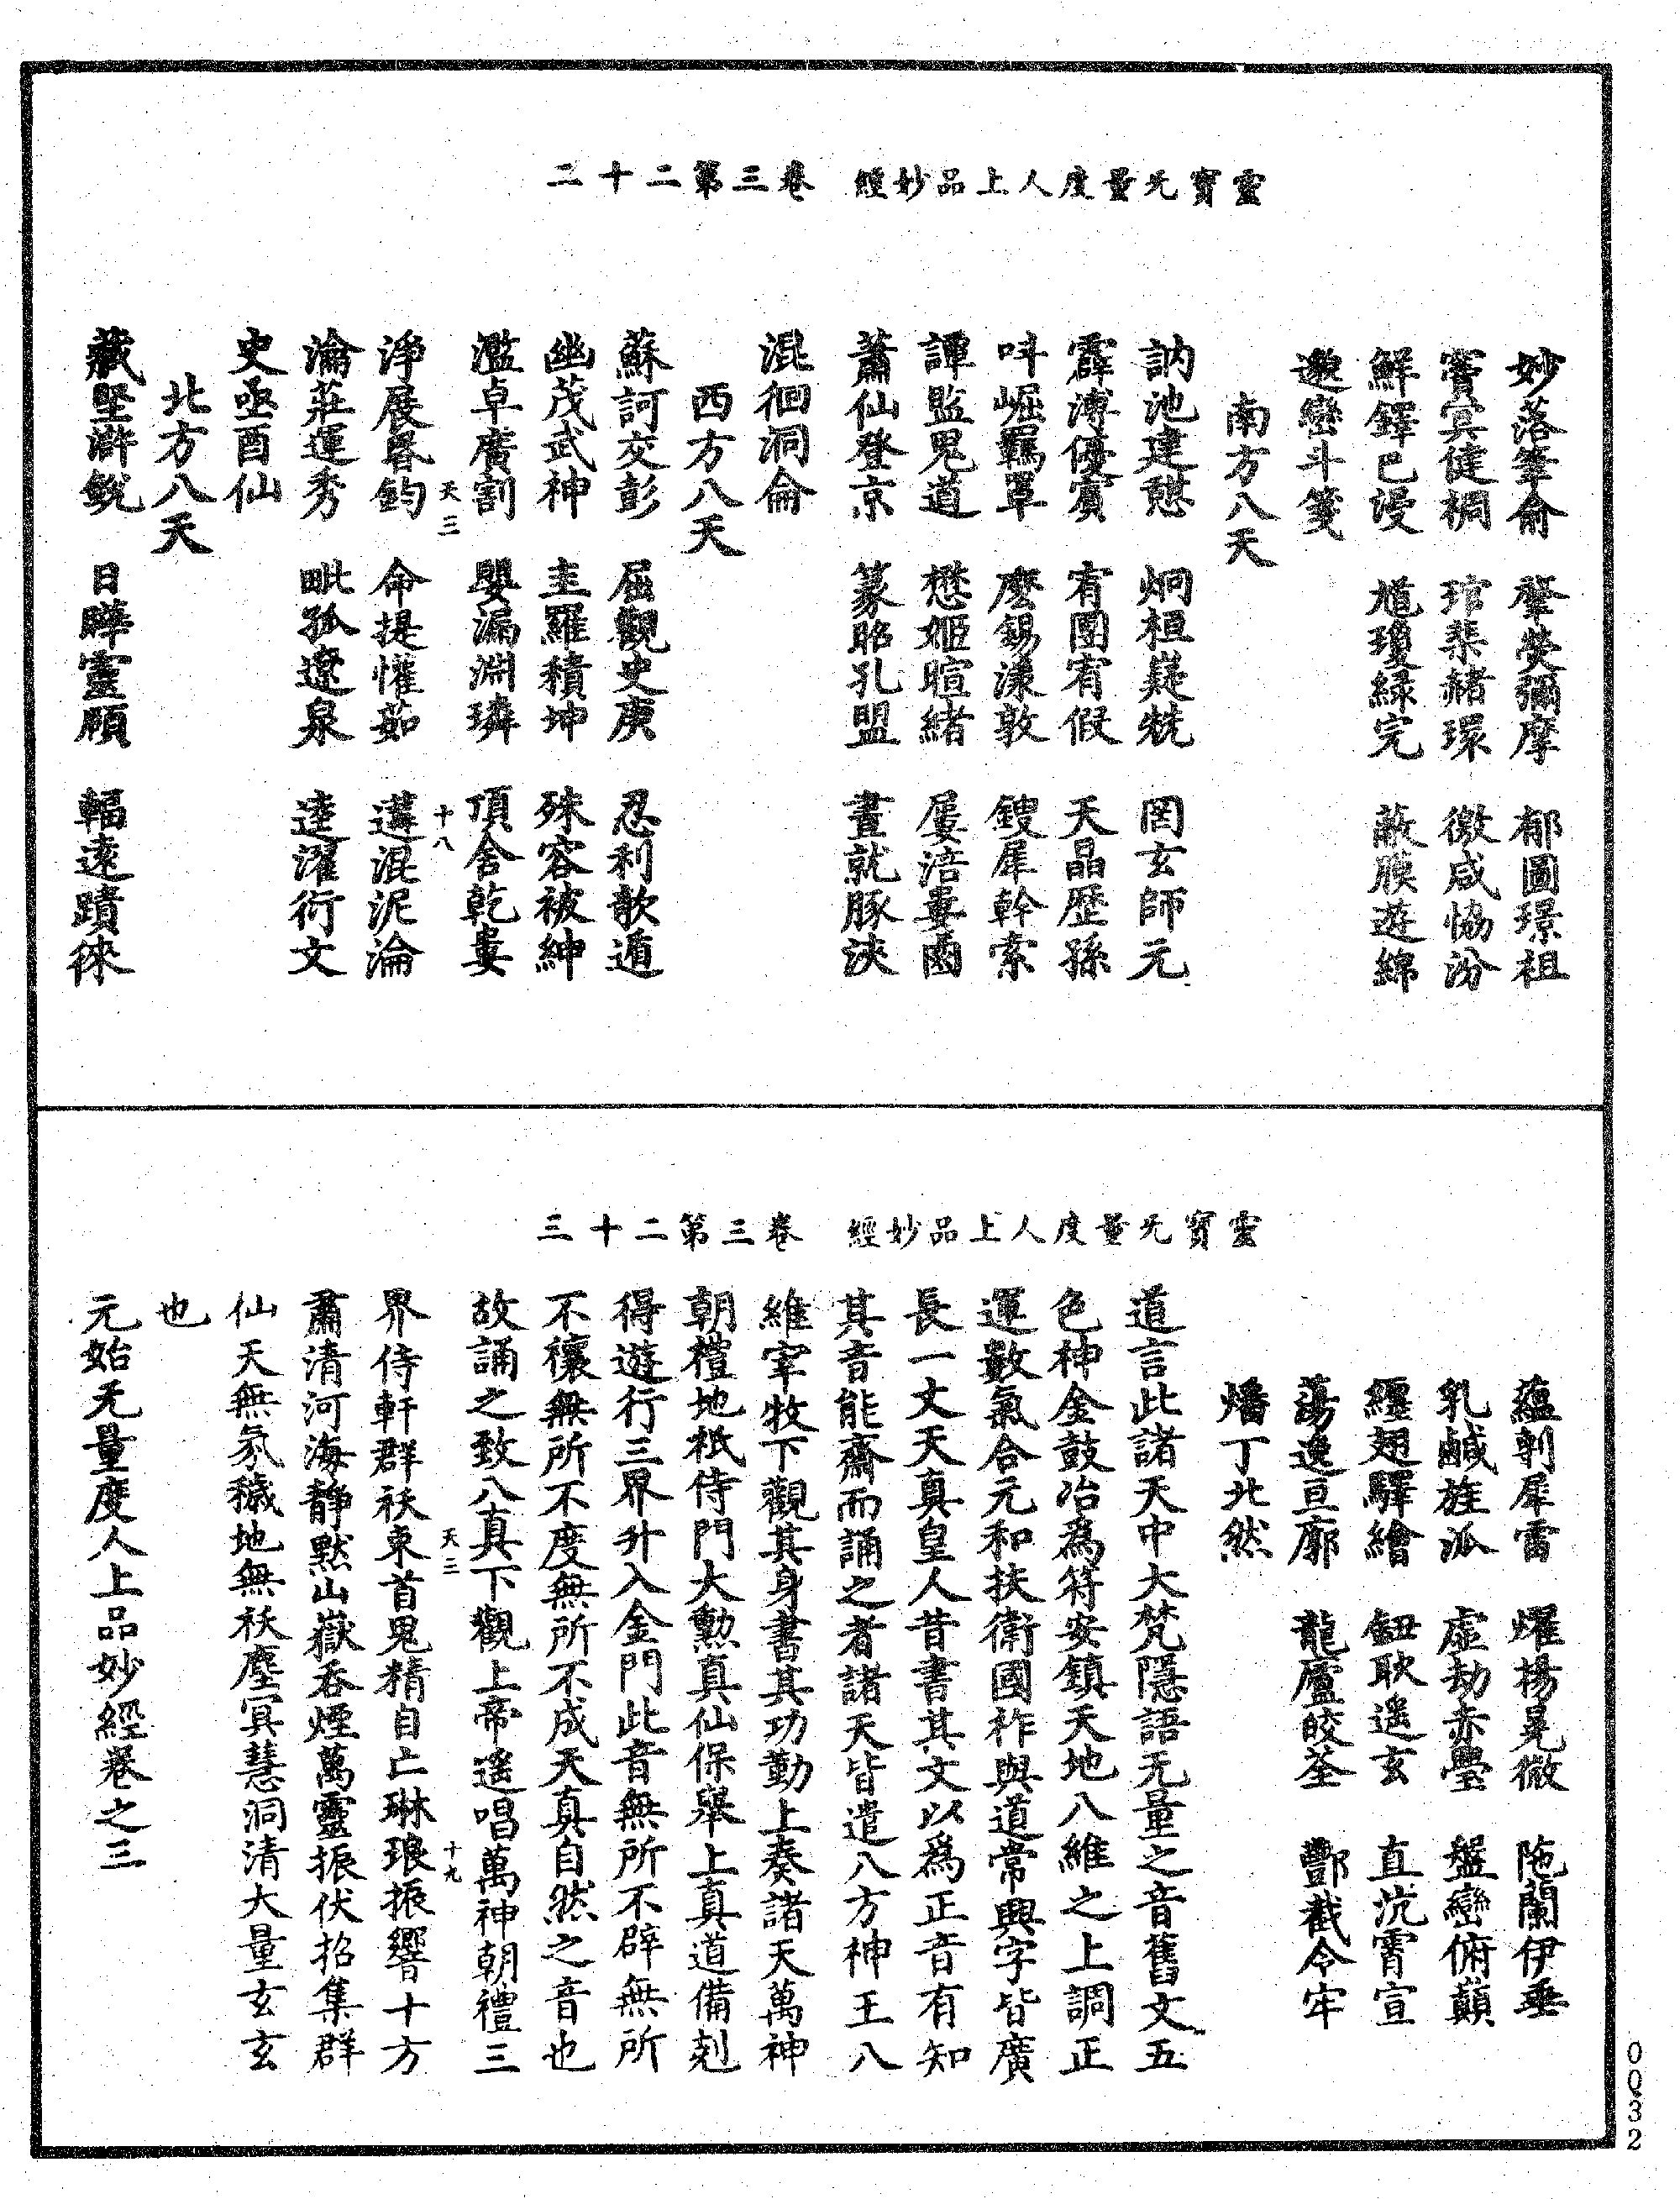 靈寶无量度人上品妙經 卷三第二十二
妙落筆侖 肇熒彌摩 郁圖璟祖
賷宾健棡 琯渠赭環 微咸恊汾
鮮鐸已漫 馗瓊綠完 蔽膜遊綿
邀巒斗箋
南方八天
訥池建憇 炯桓嶷兟 罔玄師元
霹溥優賔 有圍宥假 天晶歷孫
呌崛羈罩 麽錫漾敦 鎪犀幹索
譚監鬼道 懋姬暄緒 屢涪婁
蕭仙登京 篆昭孔盟 晝就豚浹
混徊洞侖
西方八天
蘇訶交彭 屈觀史庚 忍利歆遁
幽茂武神 圭羅積坤 殊容被紳
濫卓廣割 嬰漏淵璘 頂舍乾婁
天三 十八
淨展畧鈞 命提懽茹 遘混泥淪
瀹莊運秀 毗孤遼泉 逵濯衍文
史亟酉仙
北方八天
藏坚滸銳 日曄靈頋 輻遠蹟徠
靈寶无量度人上品妙經 卷三第二十三
蘊剌犀雷 燿楊晃微 陁蘭伊垂
乳鹹旌派 虛劫赤璺 盤巒俯巔
纒翅驛繪 鈕耿遥玄 直沆霄宣
蕩逸亘廓 龍廬皎荃 酆截令牢
燔丁北然
道言此諸天中大梵隱語无量之音舊文五
色神金鼓冶爲符安鎮天地八維之上調正
運數氣合元和扶衛國祚與道常興字皆廣
長一丈天真皇人昔書其文以爲正音有知
其音能齋而誦之者諸天皆遣八方神王八
維宰牧下觀其身書其功勤上奏諸天萬神
朝禮地祇侍門大勳真仙保舉上真道備剋
得遊行三界升入金門此音無所不辟無所
不禳無所不度無所不成天真自然之音也
故誦之致八真下觀上帝遥唱萬神朝禮三
天三 十九
界侍軒群祅東首鬼精自亡琳琅振響十方
肅清河海静默山嶽吞煙萬靈振伏招集群
仙天無氛穢地無祅塵冥慧洞清大量玄玄
也
元始无量度人上品妙經卷之三
0032